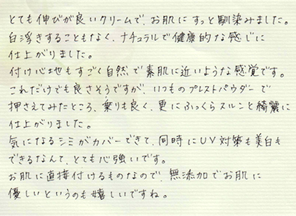 とても伸びが良いクリームで、お肌にすっと馴染みました。
白浮きすることもなく、ナチュラルで健康的な感じに
仕上がりました。
付け心地もすごく自然で素肌に近いような感覚です。
これだけでも良さそうですが、いつものプレストパウダーで
押さえてみたところ、乗りも良く、更にふっくらスルンと綺麗に
仕上がりました。
気になるシミがカバーできて、同時にUV対策も美白も
できるなんて、とても心強いです。
お肌に直接付けるものなので、無添加でお肌に
優しいというのも嬉しいですね。